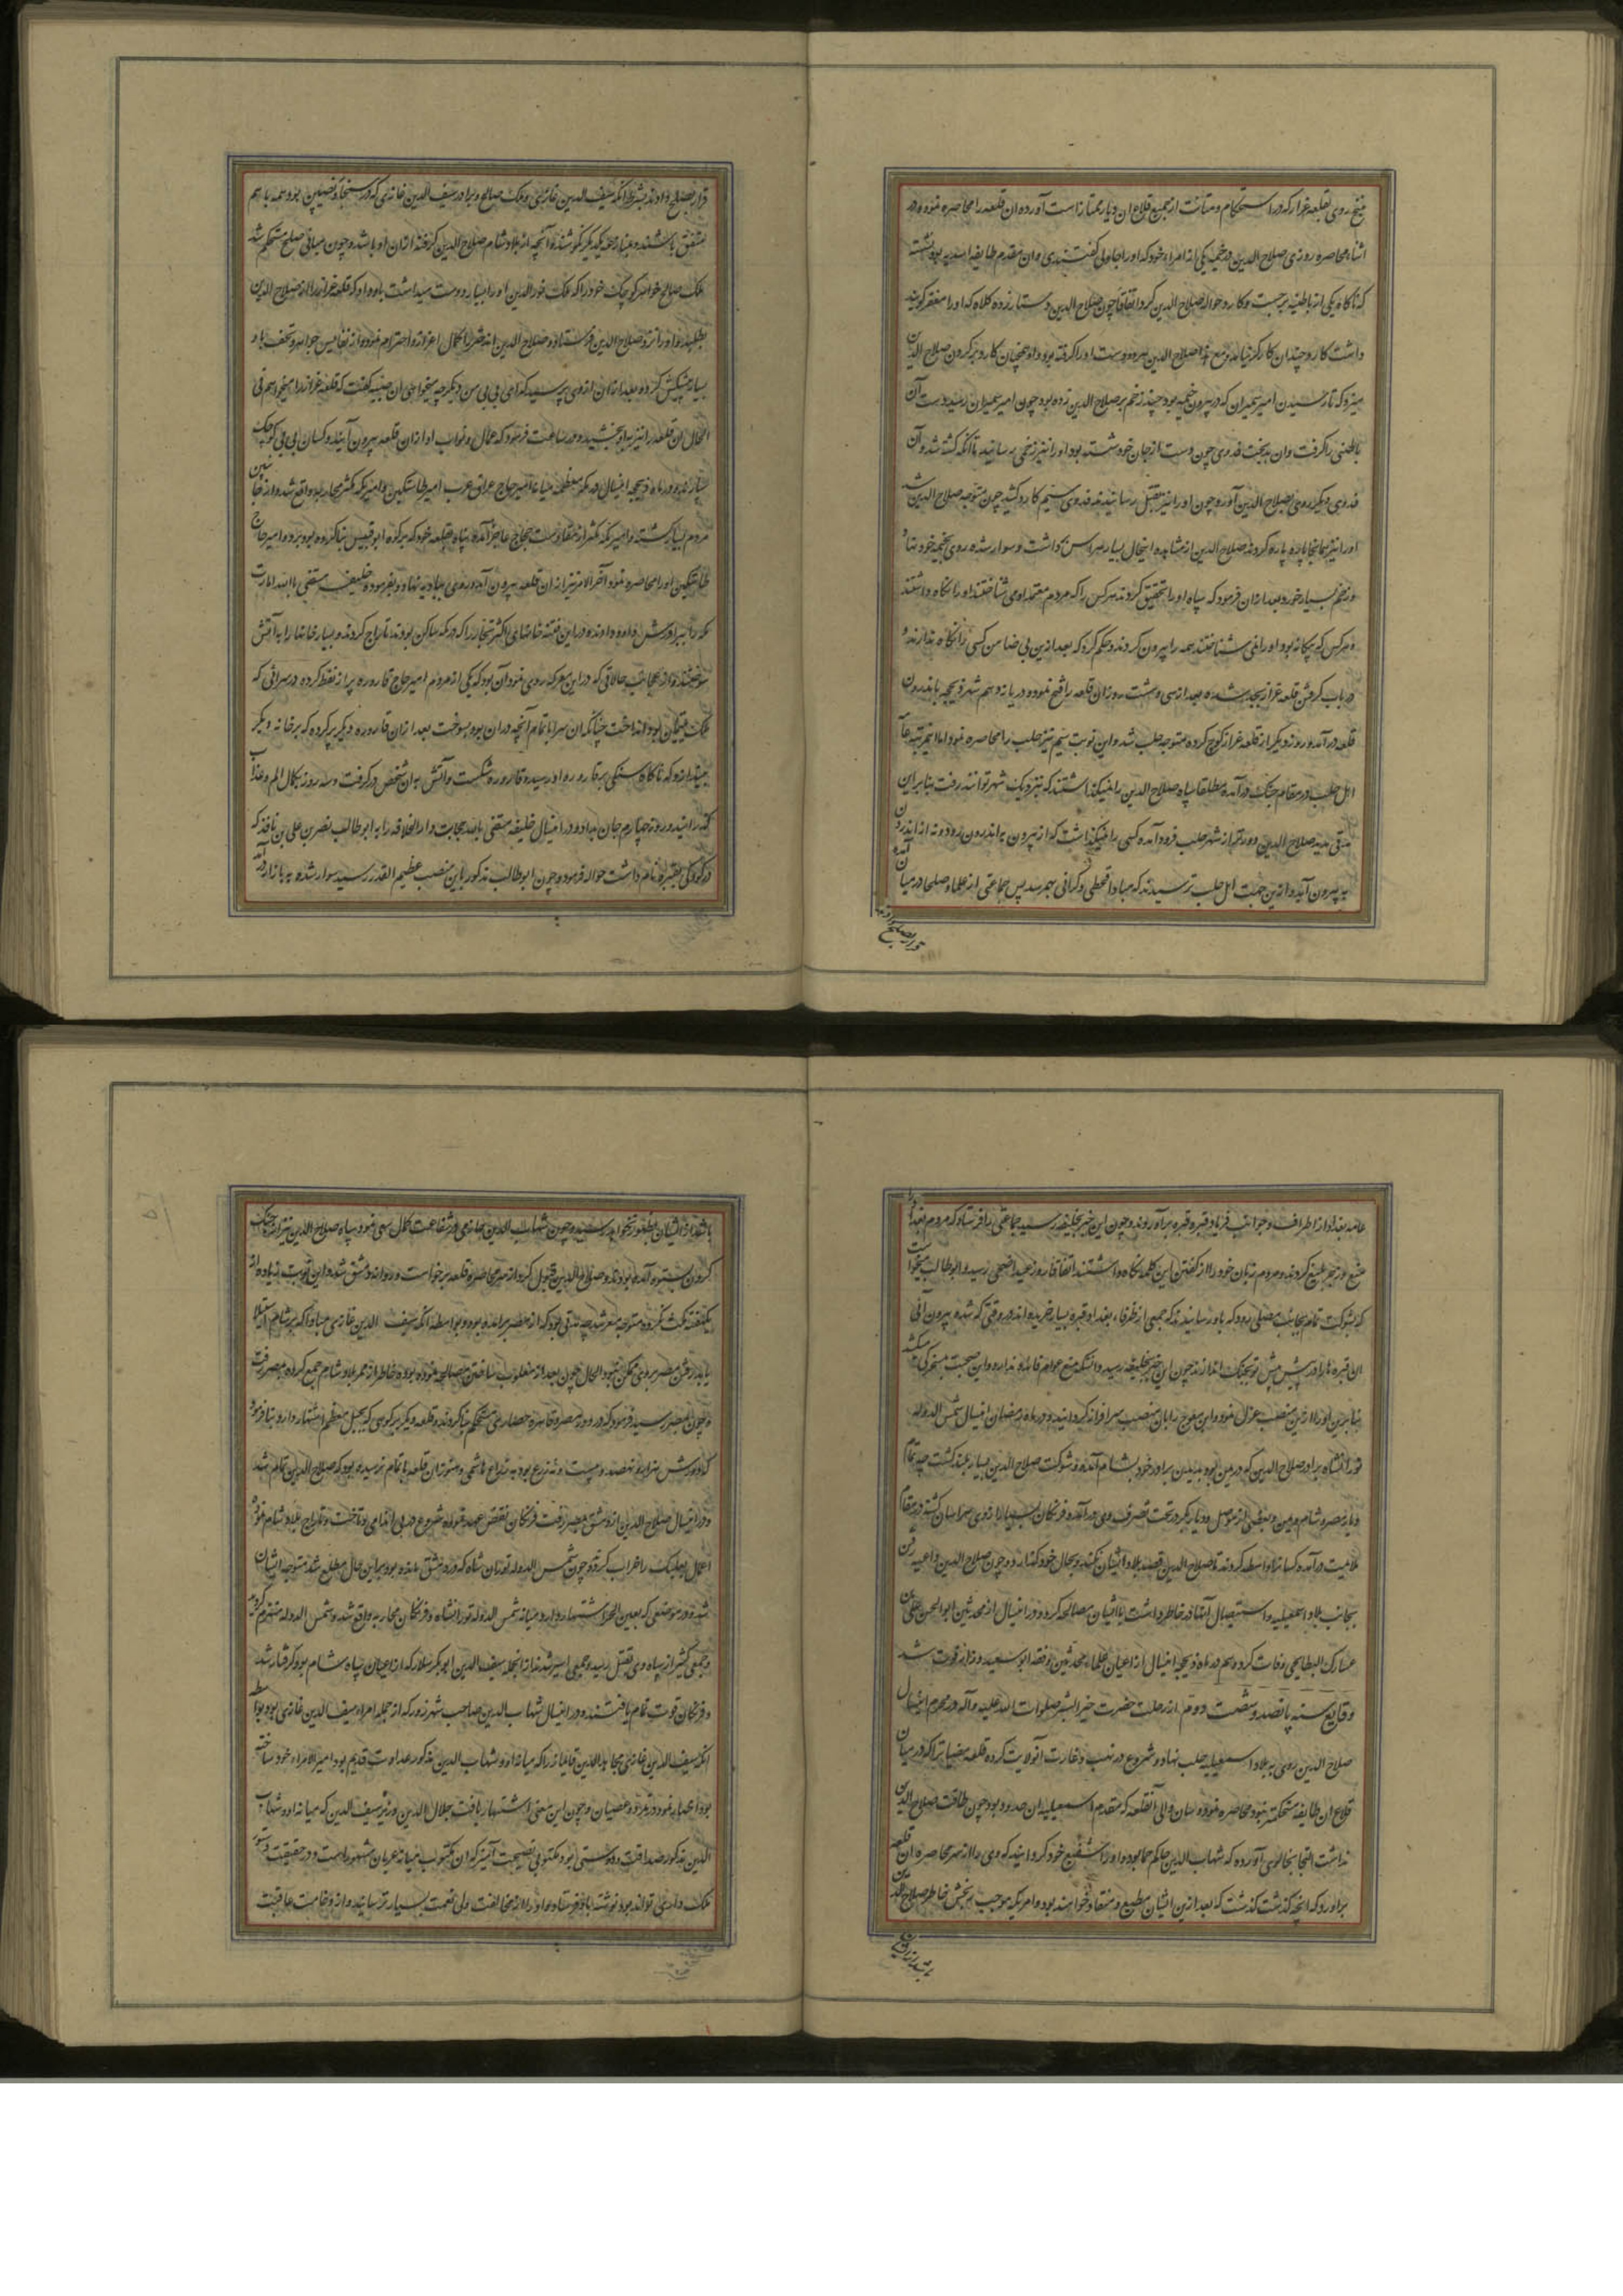 منبج روی بقلعه عزاز که در استحکام و متانت از جمیع قلاع ان دیار ممتاز است آورده ان قلعه را محاصره نموده در
اثناء محاصره روزی صلاح الدین در خیمه یکی از امراء خود که او را جاولی کفتندی وان مقدم طایفه اسدیه بود نشسته
که ناکاه یکی از باطنیه برجست وکارد حواله صلاح الدین کرد اتفاقا چون صلاح الدین دستار زده کلاه که او را مغفر کویند
داشت کارد چندان کارکر نیامد مع هذا صلاح الدین بهر دو دست او را کرفته بود و او همچنان کارد بر کردن صلاح الدین
میزد که تا رسیدن امیر که در بیرون خیمه بود چند زخم بر صلاح الدین زده بود چون امیر رسید دست آن
باطنی را کرفت وان بدبخت فدوی چون دست از جان خود شسته بود او را نیز زخمی رسانید تا آنکه کشته شد و آن
فدوی دیکر روی بصلاح الدین آورد چون او را نیز بقتل رسانیدند فدوی سیم کارد کشید چون متوجه صلاح الدین شد
او را نیز همانجا پاره پاره کردند صلاح الدین از مشاهده اینحال بسیار هراس داشت و سوار شده روی بخیمه خود نهاد
و زخم بسیار خورد بعد از ان فرمود که سپاه او را تحقیق کردند هر کس را که مردم معتمد او می شناختند او را نکاه داشتند
و هر کس که بیکانه بود و او را نمی شناختند همه را بیرون کردند و حکم کرد که بعد ازین بی ضامن کسی را نکاه ندارند و
در باب کرفتن قلعه عزاز بجد شده بعد از سی و هشت روز ان قلعه را فتح نموده در یازدهم شهر ذیحجه باندرون
قلعه در آمد و روز دیکر از قلعه عزاز کوچ کرده متوجه حلب شد و این نوبت سیم نیز حلب را محاصره نمود اما اینمرتبه عامه
اهل حلب در مقام جنک در آمده مطلقا سپاه صلاح الدین را نمیکذاشتند که بنزدیک شهر توانند رفت بنابراین
مدتی مدید صلاح الدین دورتر از شهر حلب فرود آمده کسی را نمیکذاشت که از بیرون به اندرون رود و نه از اندرون
به بیرون آید و ازین جهت اهل حلب ترسیدند که مبادا قحطی و کرانی بهم رسد پس جماعتی از علما و صلحا در میان آمده
قرار بصلح دادند
قرار بصلح دادند بشرط آنکه سیف الدین غازی و ملک صالح و برادر سیف الدین غازی که در سنجار و نصیبین بود همه با هم
متفق باشند و عناد همدیکر نکوشند و آنچه از بلاد شام صلاح الدین کرفته ازان او باشد و چون مبانی صلح مستحکم شد
ملک صالح خواهر کوچک خود را که ملک نورالدین او را بسیار دوست میداشت یاد داد که قلعه عزاز را از صلاح الدین
بطلبد و او را نزد صلاح الدین فرستاد و صلاح الدین اندختر را کمال اعزاز و احترام نمود و از نفایس جواهر و تحف باو
بسیار پیشکش کرد و بعد از ان از وی پرسید که ای بی بی من دیکر چه میخواهی ان صبیه کفت که قلعه عزاز را میخواهم فی
الحال ان قلعه را نیز به او بخشید و در ساعت فرمود که عمال و نواب او ازان قلعه بیرون آیند و کسان بی بی کوچک
بسپارند و در ماه ذیحجه اینسال در مکه معظمه میانه امیر حاج عراق عرب امیر طاشتکین و امیر مکه مکثر محاربه واقع شد و از جانبین
مردم بسیار کشته و امیر مکه مکثر از مقاومت حجاج عاجز آمده پناه بقلعه خود که بر کوه ابو قبیس بنا کرده بود برد و امیر حاج
طاشتکین او را محاصره نمود آخر الامر نیز از ان قلعه بیرون آمده روی ببادیه نهاد و بفرموده خلیفه مستضئ بالله امارت
مکه را ببرادرش داود دادند و در این فتنه خانهای اکثر تجار را که در مکه ساکن بودند تاراج کردند و بسیار خانها را به آتش
سوختند و از عجایب حالاتی که در این معرکه روی نمود آن بود که یکی از مردم امیر حاج قاروره پر از نفط کرده در سرائی که
ملک یتیمان بود انداخت چنانکه ان سرا با تمام آنچه دران بود بسوخت بعد ازان قاروره دیکر پر کرده که بر خانه دیکر
بیندازد که ناکاه سنکی بر قاروره او رسیده قاروره شکست و آتش به ان شخص در کرفت و سه روز بکمال الم و عذاب
کذرانید و روز چهارم جان بداد و در اینسال خلیفه مستضئ بالله حجابت دار الخلافه را به ابو طالب نصر بن علی بن ناقد که
در کودکی بقنبره نام داشت حواله فرمود و چون ابو طالب مذکور باین منصب عظیم القدر رسید سوار شده به بازار در آمد
عامه بغداد از اطراف و جوانب فریاد قنبره قنبره برآوردند و چون این خبر بخلیفه رسید جماعتی را فرستاد که مردم بغداد را
منع و زجر بلیغ کردند و مردم زبان خود را از کفتن این کلمه نکاه داشتند اتفاقا روز عید اضحی رسید و ابو طالب میخواست
که بشوکت تمام بجانب مصلی رود که باو رسانیدند که جمعی از ظرفاء بغداد قنبره بسیار خریده اند و در وقتی که شده بیرون آئی
ان قنبره ها را در پیش تو بجنک اندازند چون این خبر بخلیفه رسید و دانست که منع عوام فائده ندارد و این صحبت بمسخرکی میکشد
بنابرین او را ازین منصب عزل نمود و ابن معوج را بان منصب سرافراز کردانید و در ماه رمضان اینسال شمس الدوله
تورانشاه برادر صلاح الدین که در یمن بود بدیدن برادر خود بشام آمده و شوکت صلاح الدین بسیار بلند کشت چه تمام
دیار مصر و شام و یمن و بعضی از موصل و دیار بکر در تحت تصرف وی در آمد و فرنکان بسیار از وی هراسان کشته در مقام
ملایمت در آمده کسانرا واسطه کردند تا صلاح الدین قصد بلاد ایشان نکند و بحال خود کذارد و چون صلاح الدین داعیه رفتن
بجانب بلاد اسمعیلیه و استیصال آنها در خاطر داشت با ایشان مصالحه کرد و در اینسال از محدثین ابو الحسن علی بن
عساکر البطایحی وفات کرد و هم در ماه ذیحجه اینسال از اعیان علماء محدثین و فقه ابو سعید فوت شد
وقایع سنه پانصد و شصت و دوم از رحلت حضرت خیر البشر صلوات الله علیه و آله در محرم اینسال
صلاح الدین روی به بلاد اسمعیلیه حلب نهاد و شروع در نهب و غارت آنولایت کرده قلعه مصیاترا که در میان
قلاع ان طایفه مستحکمتر نبود محاصره نموده سنان والی آنقلعه که مقدم اسمعیلیه ان حدود بود چون طاقت صلاح الدین
نداشت التجا بخالوی آورده که شهاب الدین حاکم حما بود و او را شفیع خود کردانید که وی را از سر محاصره ان قلعه
براورد که آنچه کذشت کذشت که بعد ازین ایشان مطیع و منقاد خواهند بود و امریکه موجب رنجش خاطر صلاح الدین
باشد از ایشان
باشد از ایشان بظهور نخواهد رسید و چون شهاب الدین حازمی در شفاعت کمال سعی نمود و سپاه صلاح الدین نیز از جنک
کردن بستوه آمده بودند صلاح الدین قبول کرد و از سر محاصره قلعه برخواست و روانه دمشق شد و این نوبت زیاده از
یکهفته مکث نکرده متوجه مصر شد چه مدتی بود که از مصر برامده بود و بواسطه آنکه سیف الدین غازی مبادا که بر شام استیلا
یابد رفتن مصر بروی ممکن نبود الحال چون بعد از مغلوب ساختن مصالحه نموده بود خاطر از ممر بلاد شام جمع کرده بمصر رفت
و چون بمصر رسید فرمود که در دور مصر و قاهره حصاری مستحکم بنا کردند و قلعه دیکر بر کوهی که بجبل مقطم اشتهار دارد بنا فرمود
که دورش هزار و نهصد و بیست و نه ذرع بود به ذراع هاشمی و هنوز ان قلعه با تمام نرسیده بود که صلاح الدین تمام شد
و در اینسال صلاح الدین از دمشق بمصر رفت فرنکان نقض عهد نموده شروع در بی اندامی و تاخت و تاراج بلاد شام نموده
اعمال بعلبک را خراب کردند و چون شمس الدوله توران شاه که در دمشق مانده بود براین حال مطلع شد متوجه ایشان
شد و در موضعی که بعین الجر اشتهار دارد میانه شمس الدوله تورانشاه و فرنکان محاربه واقع شد و شمس الدوله منهزم کردید
و جمعی کثیر از سپاه وی بقتل رسید و جمعی اسیر شدند از آنجمله سیف الدین ابو بکر سلار که از اعیان سپاه شام بود کرفتار شد
و فرنکان قوت تمام یافتند و در اینسال شهاب الدین صاحب شهرزور که از جمله امراء سیف الدین غازی بود بواسطه
آنکه سیف الدین غازی مجاهد الدین قایماز را که میانه او و شهاب الدین مذکور عداوت قدیم بود امیر الامراء خود ساخته
بود اظهار نمود در تمرد و عصیان و چون این معنی اشتهار یافت جلال الدین وزیر سیف الدین که میانه او و شهاب
الدین مذکور صداقت و دوستی بود مکتوبی نصیحت آمیز که ان مکتوب میانه عربان مشهور است و در حقیقت دستور
ملک داری تواند بود نوشته باو فرستاد و او را از مخالفت ولی نعمت بسیار ترسانید و از وخامت عاقبت